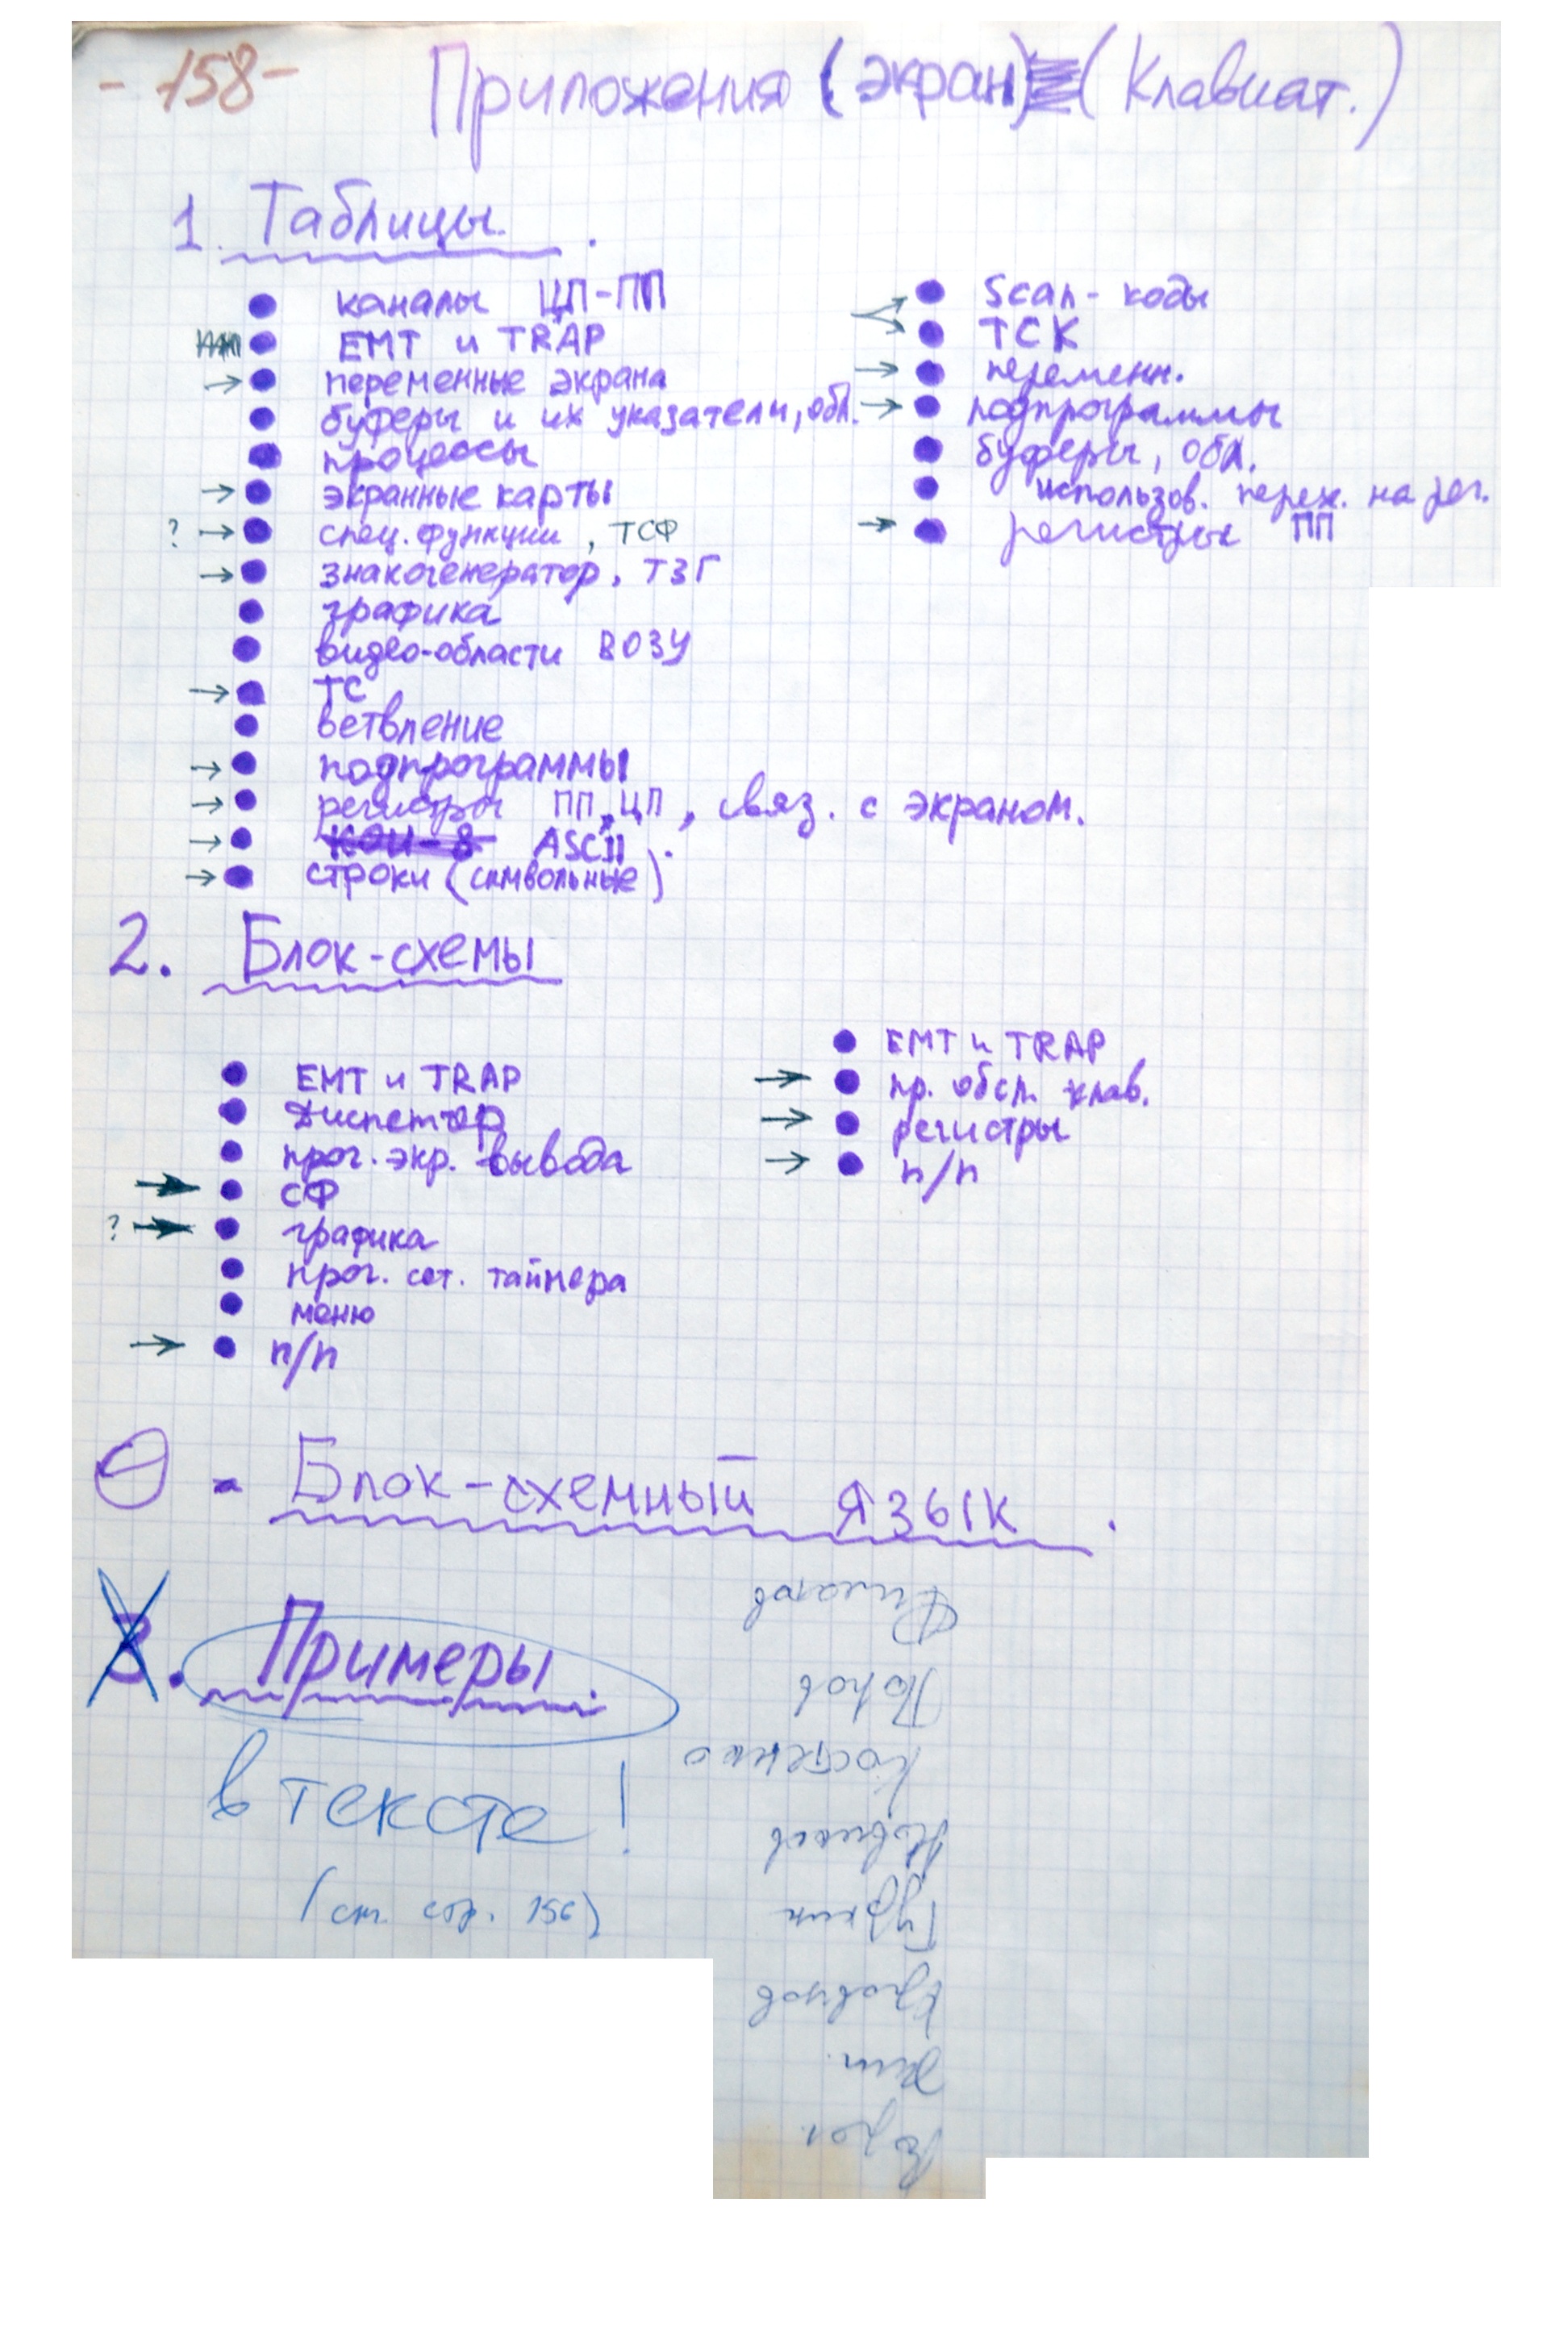 - 158 -
Приложения (экран) (Клавиат.)
1. Таблицы.
● каналы ЦП-ПП
● EMT и TRAP
→ ● переменные экрана
● буферы и их указатели, обл.
● процессы
→ ● экранные карты
? → ● спец. функции, ТСФ
→ ● знакогенератор, ТЗГ
● графика
● видео-области ВОЗУ
→ ● ТС
● ветвление
→ ● подпрограммы
→ ● регистры ПП, ЦП, связ. с экраном.
→ ● КОИ-8 ASCII.
→ ● строки (символьные)
→ ● Scan-коды
→ ● ТСК
→ ● переменн.
→ ● подпрограммы
● буферы, обл.
● использов. на рег.
→ ● регистры ПП
2. Блок-схемы
● EMT и TRAP
● Диспетчер
● прог. экр. вывода
→ ● СФ
? → ● графика
● прог. сет. таймера
● меню
→ ● п/п
● EMT и TRAP
→ ● пр. обсл. клав.
→ ● регистры
→ ● п/п
Блок-схемный язык.
3. Примеры.
в тексте!
(см. стр. 156)
Филатов
Попов
Костенко
Новиков
Гуркин
Кравцов